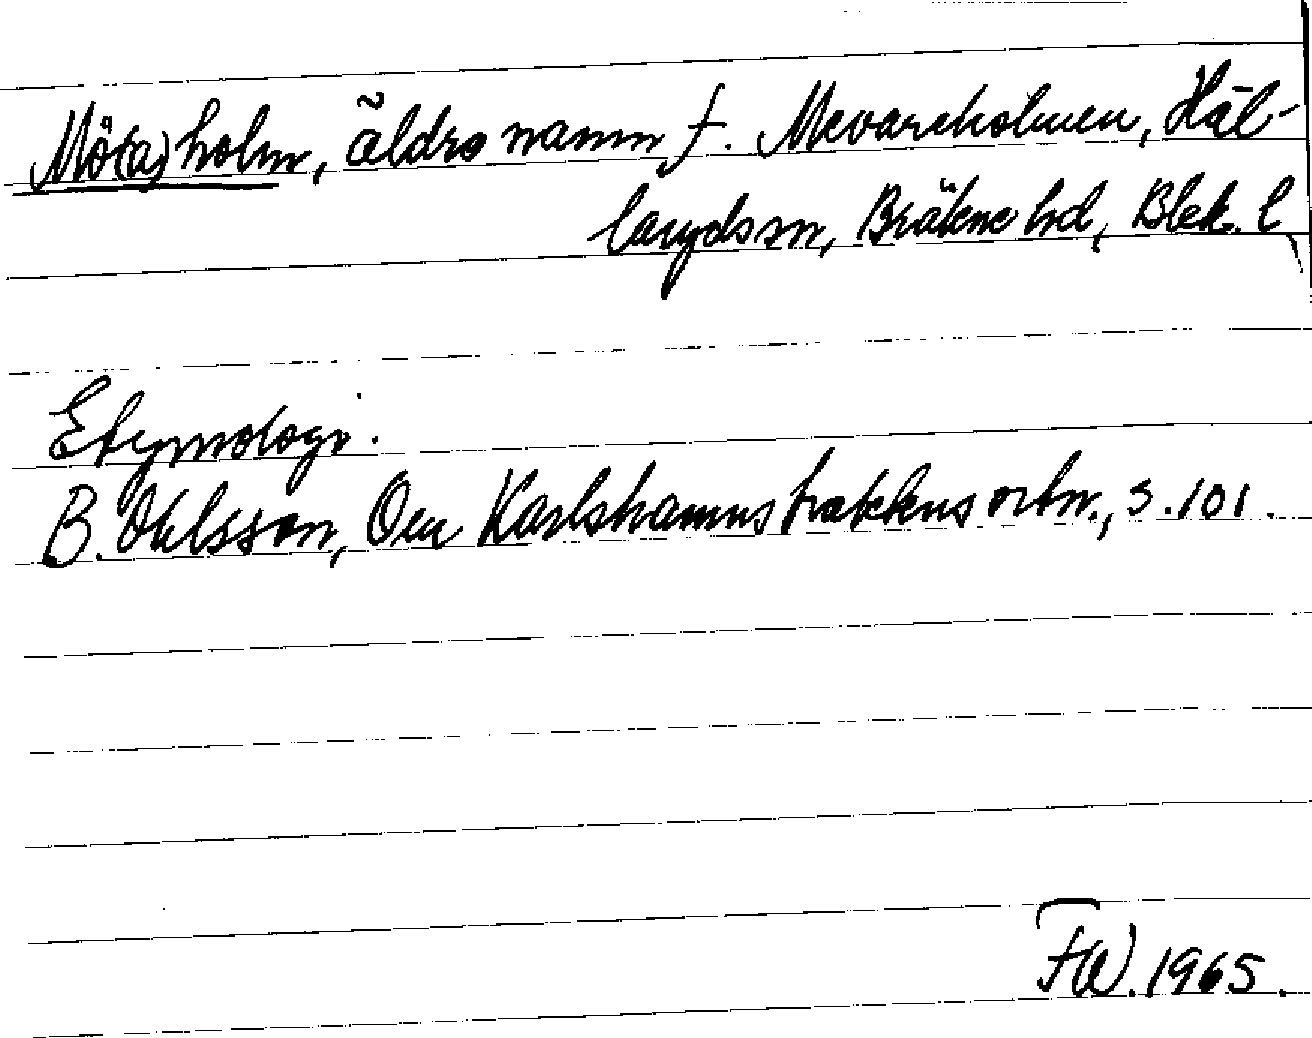 Mö(a)holm, äldre namn f. Mevareholmen, Häl-
larydssn, Bräkne hd, Blek. l
Etymologi.
B. Ohlsson, Om Karlshamnstraktens ortn., s. 101.
FW. 1965.